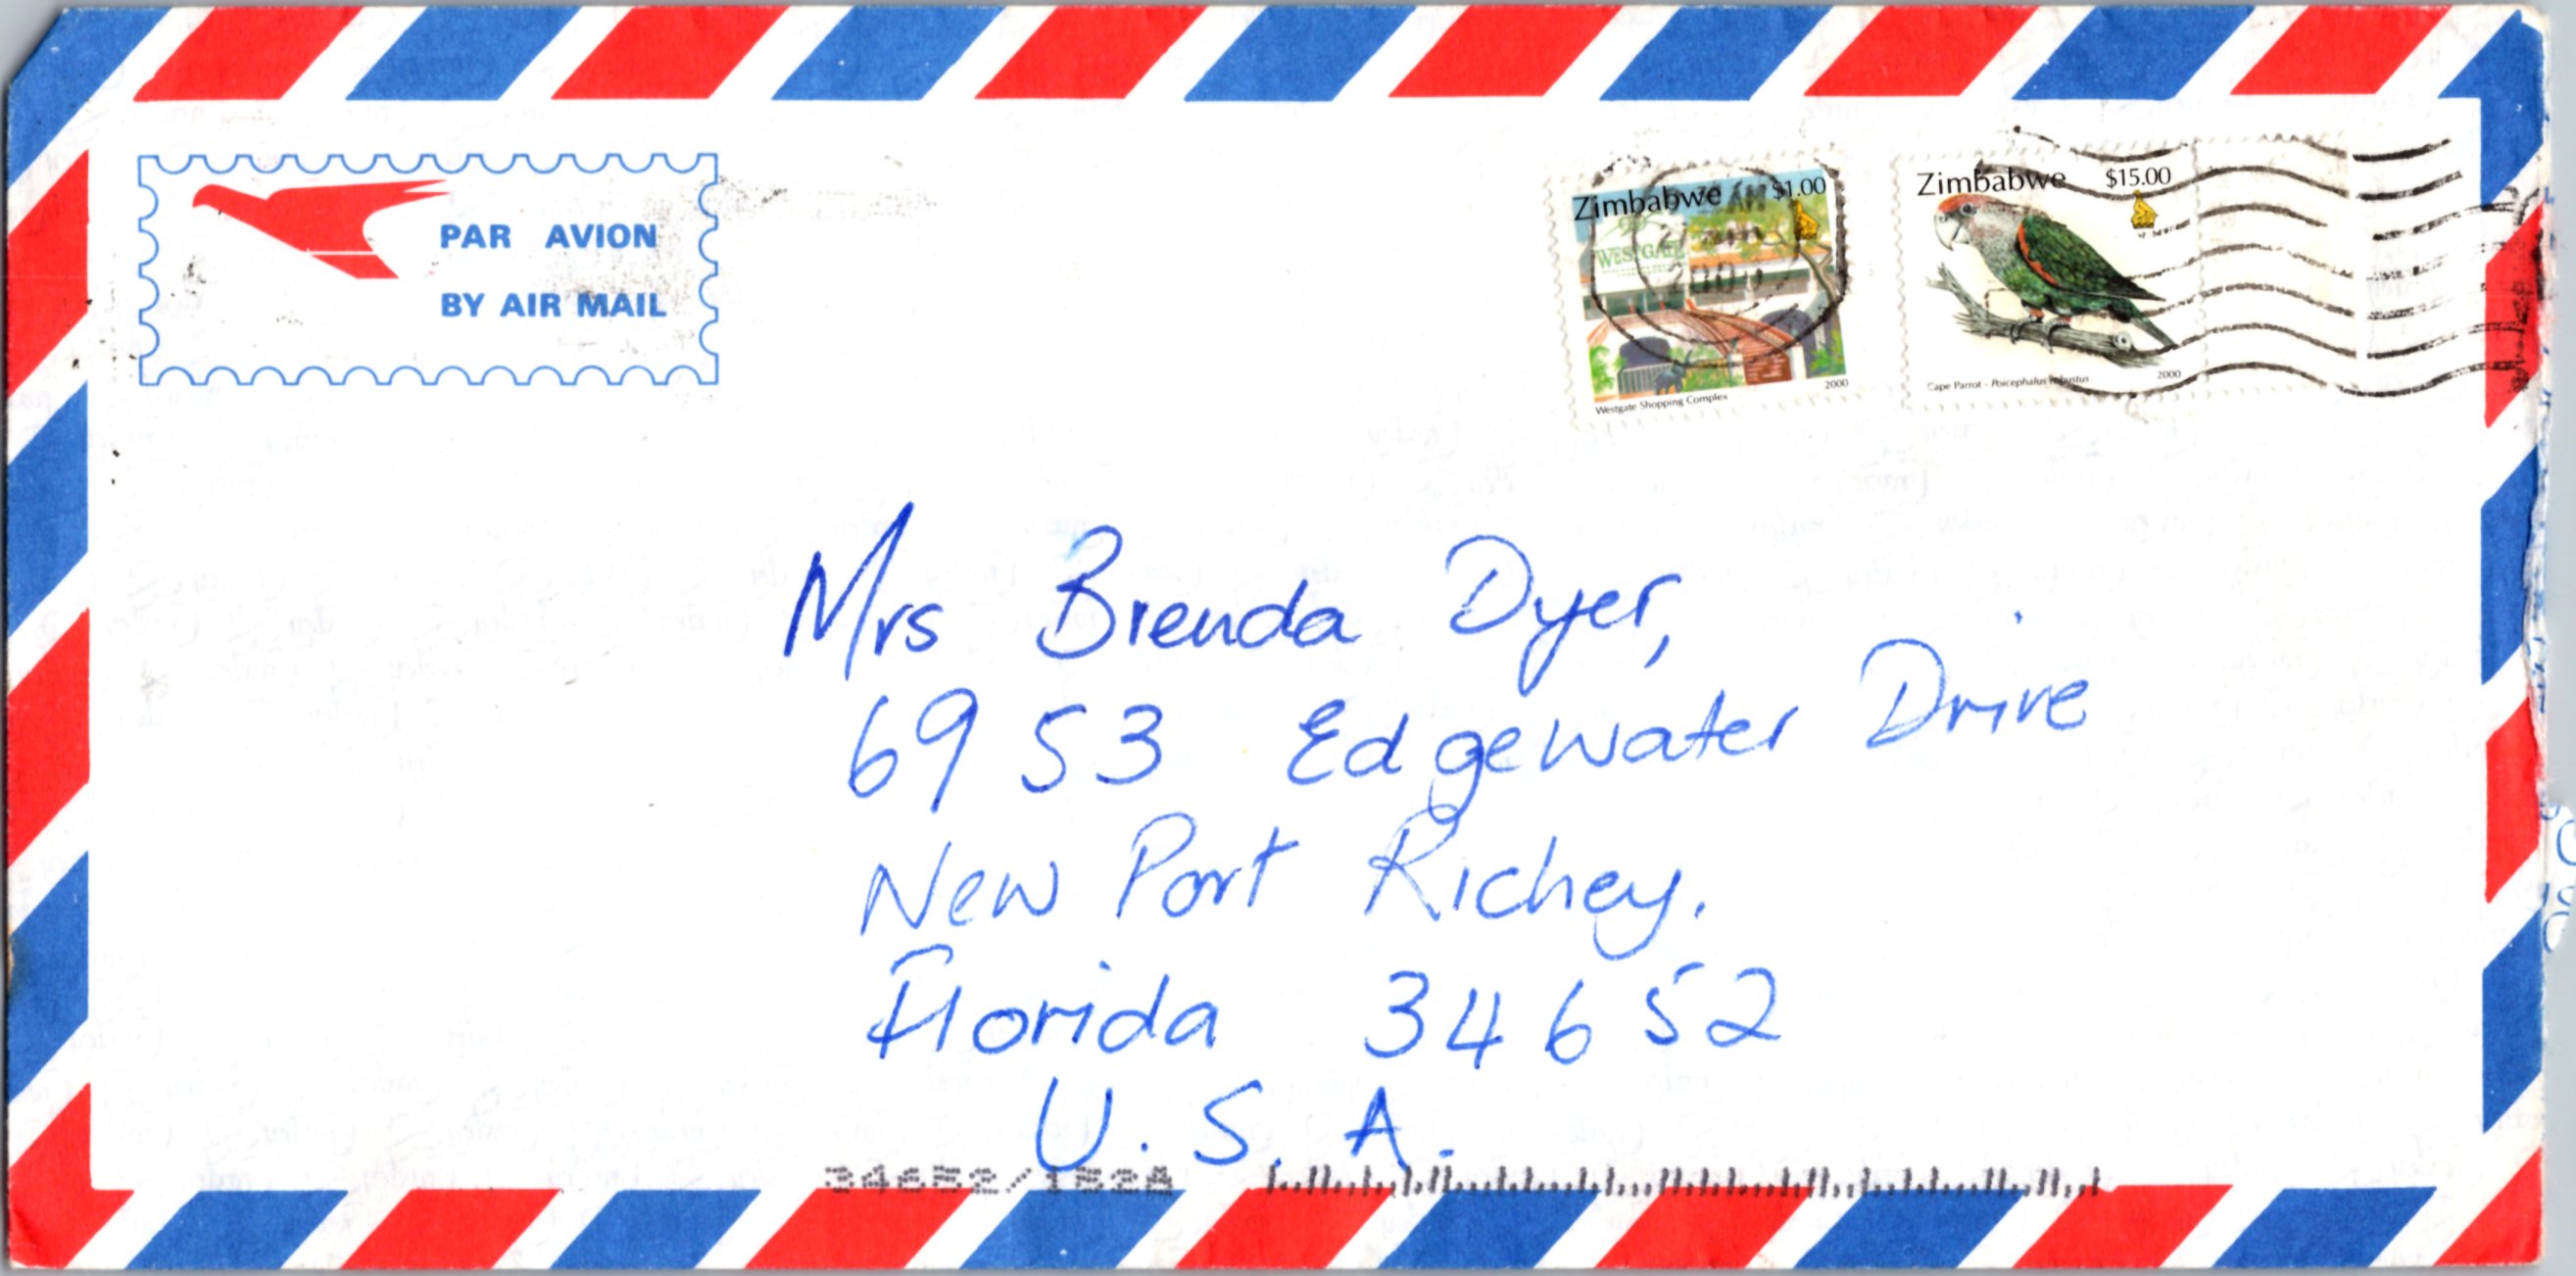 PAR AVION
BY AIR MAIL
Zimbabwe $1.00
WESTGATE
2000
Westgate Shopping Complex 2000
Zimbabwe $15.00
Cape Parrot - Poicephalus robustus 2000
Mrs Brenda Dyer,
6953 Edgewater Drive
New Port Richey.
Florida 34652
U.S.A.
34652/1528